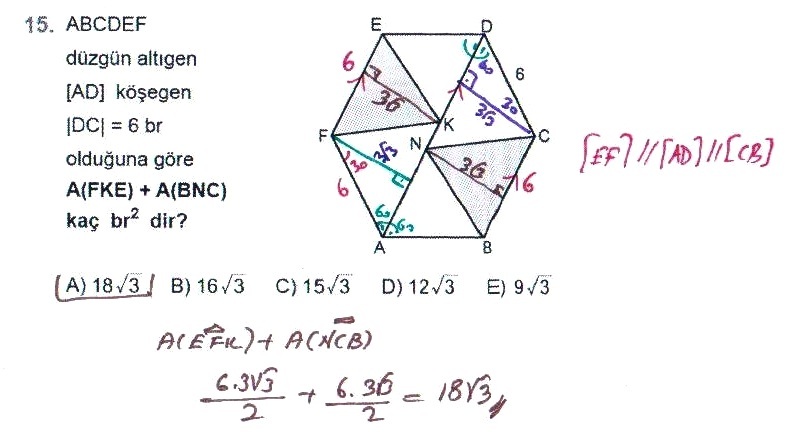 15. ABCDEF
düzgün altıgen
[AD] köşegen
|DC| = 6 br
olduğuna göre
A(FKE) + A(BNC)
kaç br² dir?
E
D
6
60
60
6
3√3
3√3
30
F
K
N
C
3√3
30
3√3
6
6
60
60
A
B
[EF] // [AD] // [CB]
A) 18√3 B) 16√3 C) 15√3 D) 12√3 E) 9√3
A(EFK) + A(NCB)
6.3√3/2 + 6.3√3/2 = 18√3